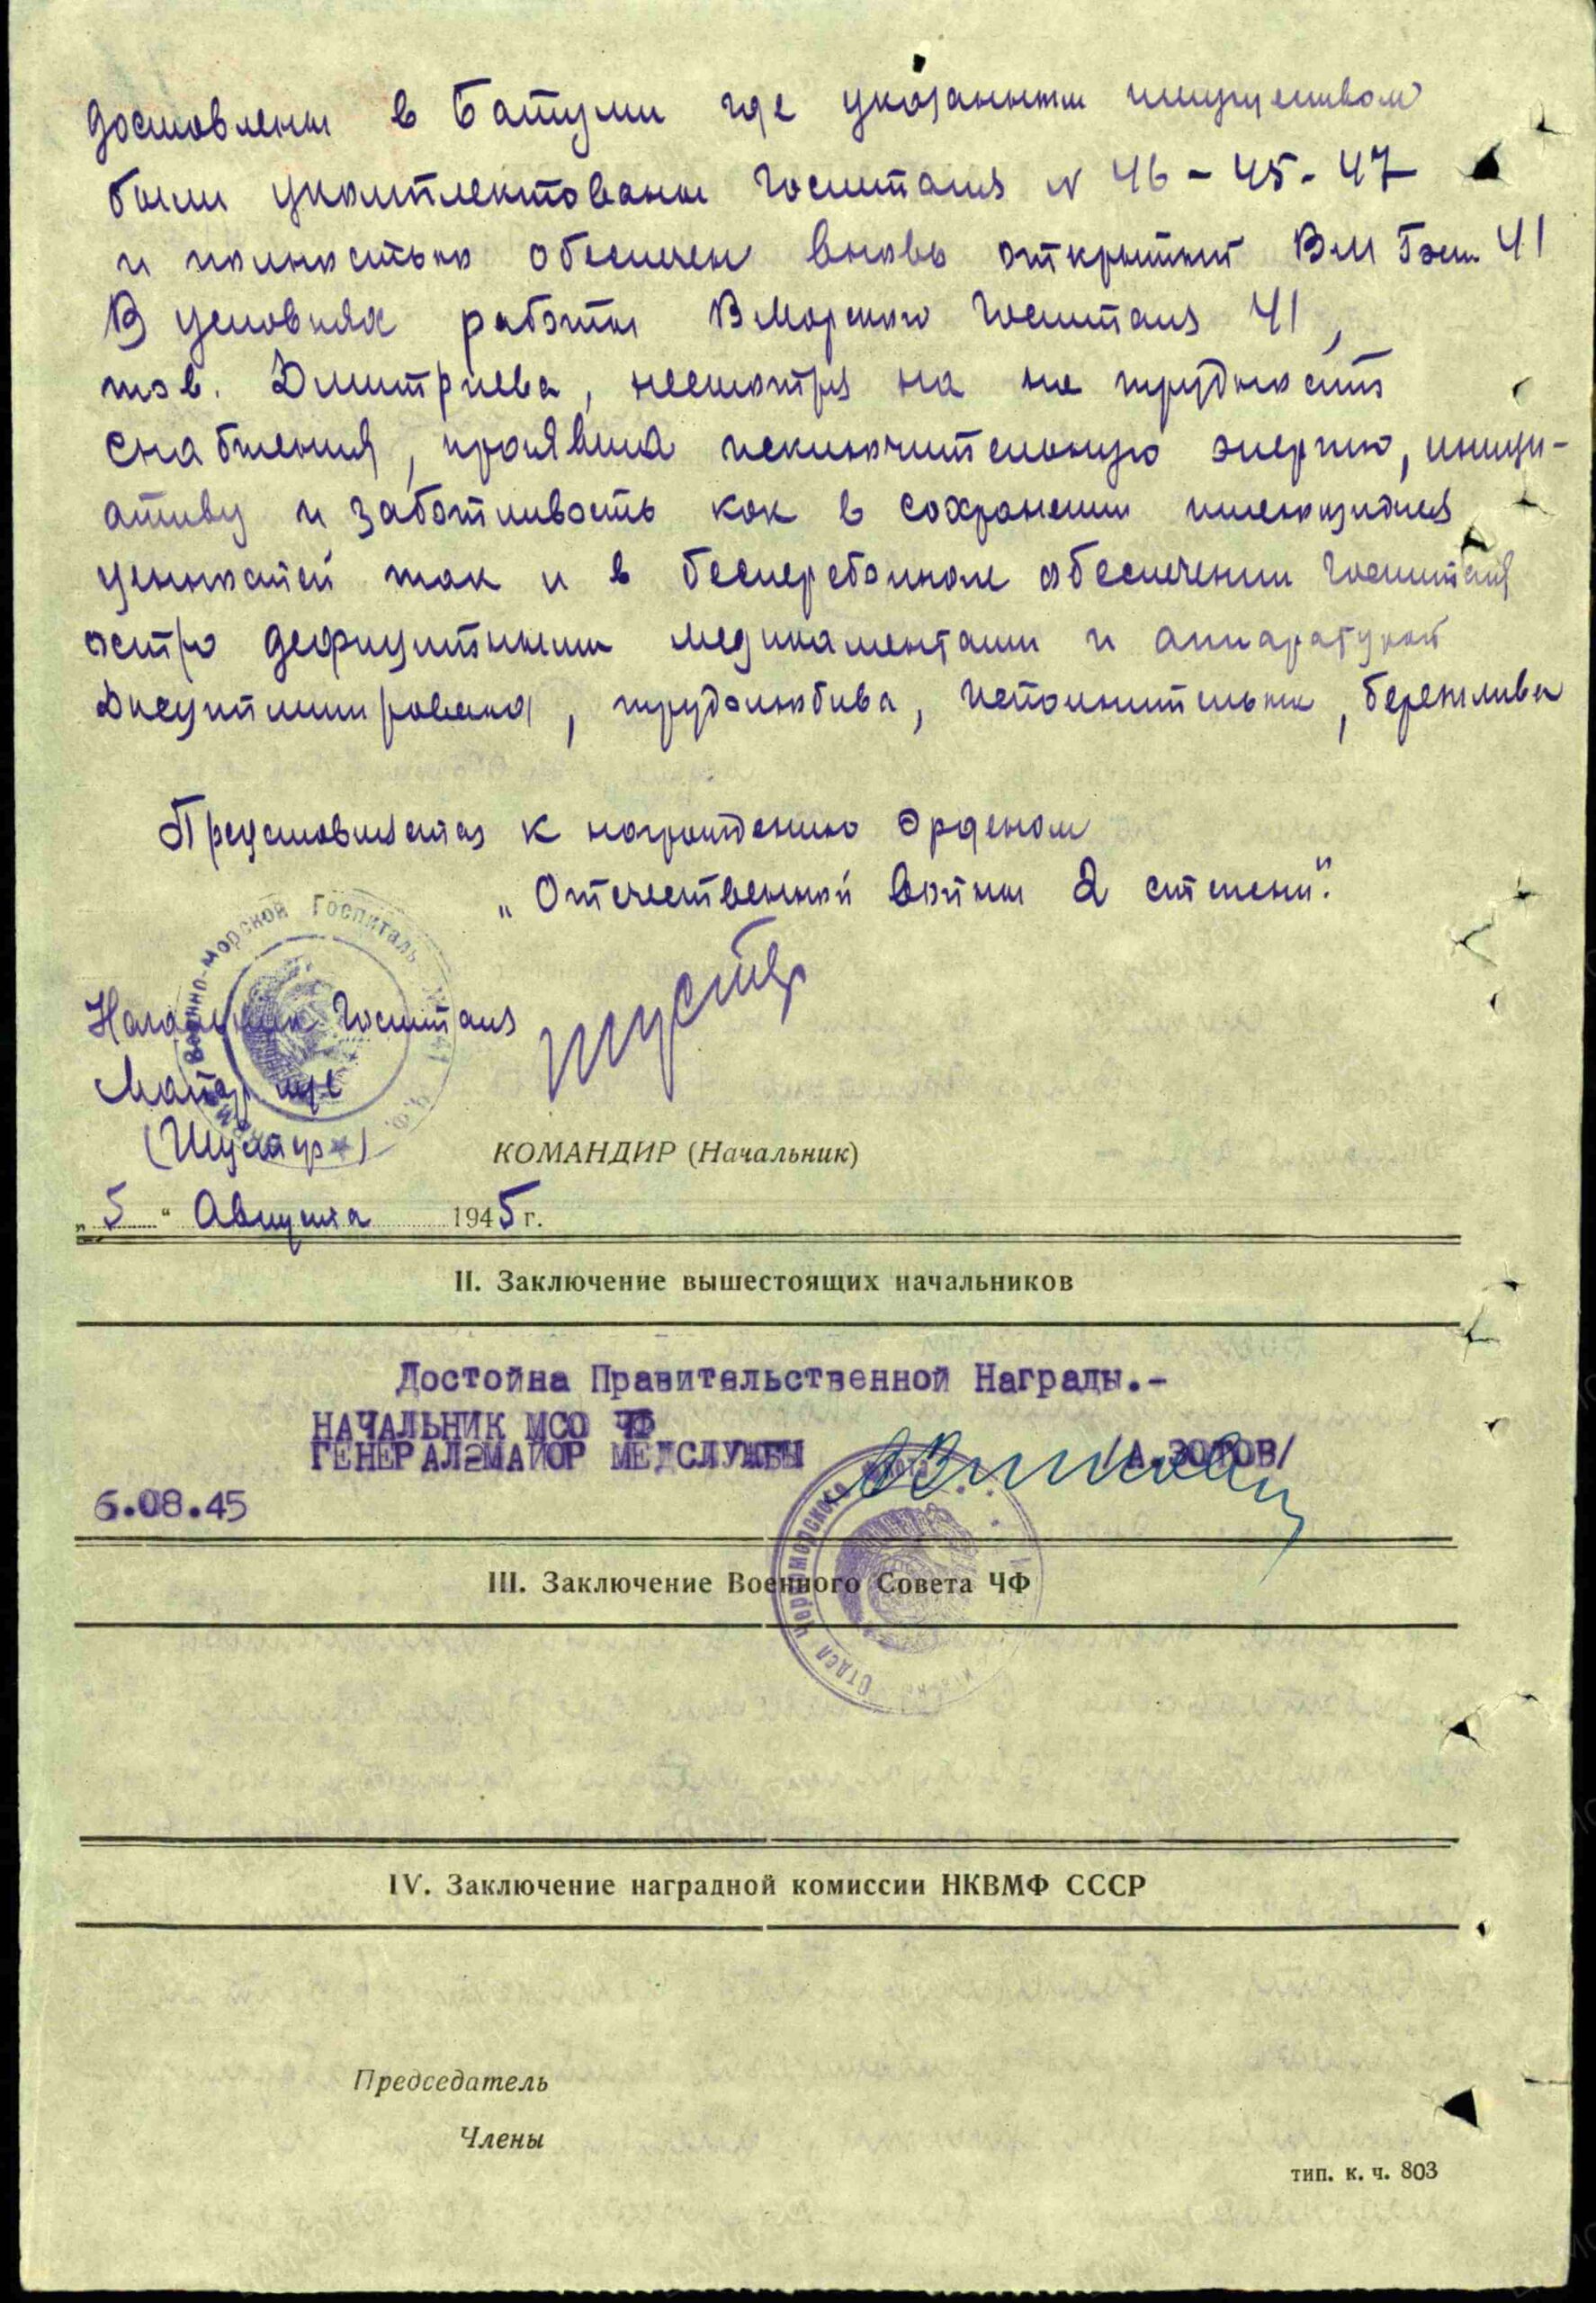 доставлены в Батуми где указанным имуществом
были укомплектованы госпиталя № 46 - 45 - 47
и полностью обеспечен вновь открытый ВМ Госп. 41
В условиях работы ВМорского Госпиталя 41,
тов. Дмитриева, несмотря на не трудность
снабжения, проявила исключительную энергию, иници-
ативу и заботливость как в сохранении имеющихся
ценностей так и в бесперебойном обеспечении госпиталя
остро дефицитными медикаментами и аппаратурой
Дисциплинирована, трудолюбива, исполнительна, бережлива
Представляется к награждению Орденом
„Отечественной войны 2 степени".
Военно-Морской Госпиталь № 41 Ч.Ф.
Начальник Госпиталя
Майор м/с
(Шустер)
КОМАНДИР (Начальник)
„5" Августа 1945 г.
II. Заключение вышестоящих начальников
Достойна Правительственной Награды.-
НАЧАЛЬНИК МСО ЧФ
ГЕНЕРАЛ-МАЙОР МЕДСЛУЖБЫ /А.ЗОТОВ/
6.08.45
отдел Черноморского
III. Заключение Военного Совета ЧФ
IV. Заключение наградной комиссии НКВМФ СССР
Председатель
Члены
тип. к. ч. 803